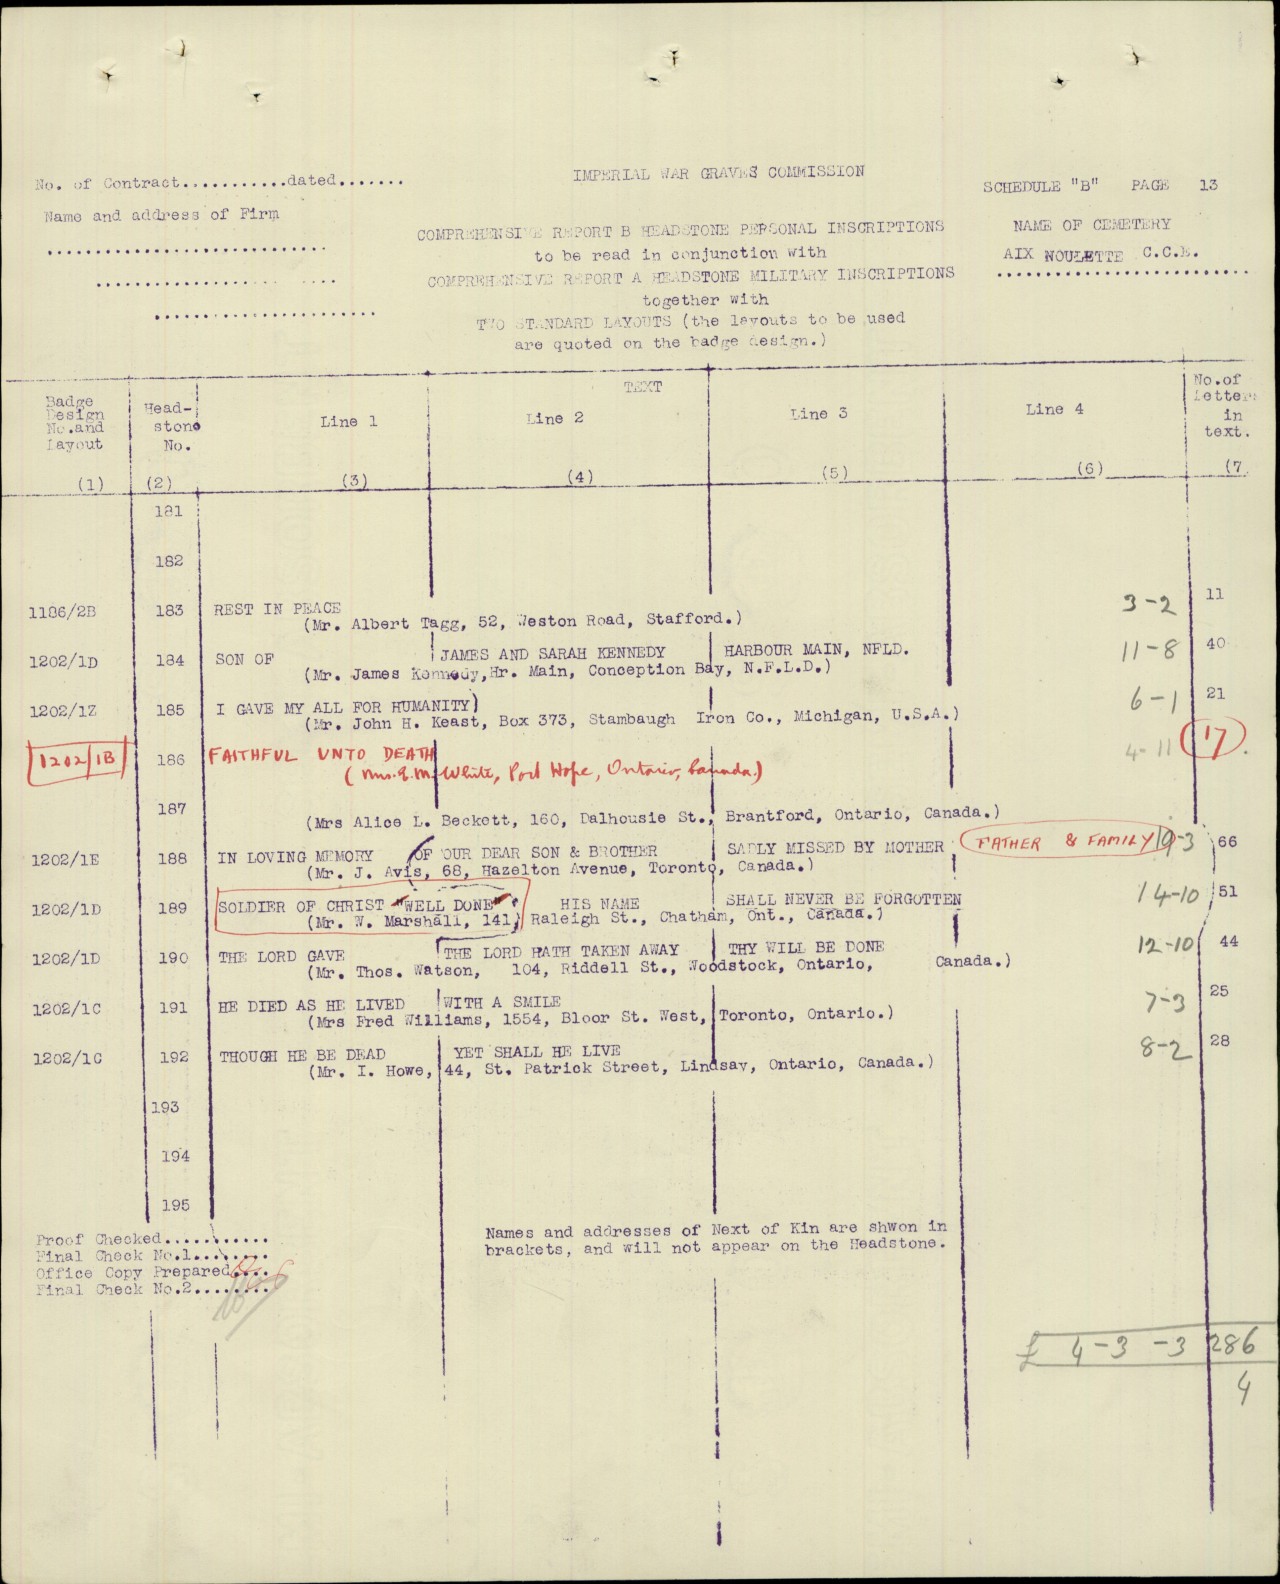 No. of Contract...........dated.......
IMPERIAL WAR GRAVES COMMISSION
SCHEDULE "B" PAGE 13
Name and address of Firm
NAME OF CEMETERY
COMPREHENSIVE REPORT B HEADSTONE PERSONAL INSCRIPTIONS
to be read in conjunction with
AIX NOULETTE C.C.E.
COMPREHENSIVE REPORT A HEADSTONE MILITARY INSCRIPTIONS
together with
TWO STANDARD LAYOUTS (the layouts to be used
are quoted on the badge design.)
Badge Design No.and Layout
Head-stone No.
TEXT
Line 1
Line 2
Line 3
Line 4
No.of Letters in text.
(1) (2) (3) (4) (5) (6) (7.
181
182
1186/2B 183 REST IN PEACE 3-2 11
(Mr. Albert Tagg, 52, Weston Road, Stafford.)
1202/1D 184 SON OF JAMES AND SARAH KENNEDY HARBOUR MAIN, NFLD. 11-8 40
(Mr. James Kennedy,Hr. Main, Conception Bay, N.F.L.D.)
1202/1Z 185 I GAVE MY ALL FOR HUMANITY) 6-1 21
(Mr. John H. Keast, Box 373, Stambaugh Iron Co., Michigan, U.S.A.)
1202/1B 186 FAITHFUL UNTO DEATH 4-11 17.
(Mrs. E.M. White, Port Hope, Ontario, Canada.)
187
(Mrs Alice L. Beckett, 160, Dalhousie St., Brantford, Ontario, Canada.)
1202/1E 188 IN LOVING MEMORY OF OUR DEAR SON & BROTHER SADLY MISSED BY MOTHER FATHER & FAMILY 19-3 66
(Mr. J. Avis, 68, Hazelton Avenue, Toronto, Canada.)
1202/1D 189 SOLDIER OF CHRIST "WELL DONE" HIS NAME SHALL NEVER BE FORGOTTEN 14-10 51
(Mr. W. Marshall, 141, Raleigh St., Chatham, Ont., Canada.)
1202/1D 190 THE LORD GAVE THE LORD HATH TAKEN AWAY THY WILL BE DONE 12-10 44
(Mr. Thos. Watson, 104, Riddell St., Woodstock, Ontario, Canada.)
1202/1C 191 HE DIED AS HE LIVED WITH A SMILE 7-3 25
(Mrs Fred Williams, 1554, Bloor St. West, Toronto, Ontario.)
1202/1C 192 THOUGH HE BE DEAD YET SHALL HE LIVE 8-2 28
(Mr. I. Howe, 44, St. Patrick Street, Lindsay, Ontario, Canada.)
193
194
195
Proof Checked...........
Final Check No.1........
Office Copy Prepared....
Final Check No.2........
Names and addresses of Next of Kin are shwon in
brackets, and will not appear on the Headstone.
£ 4-3-3 286
4